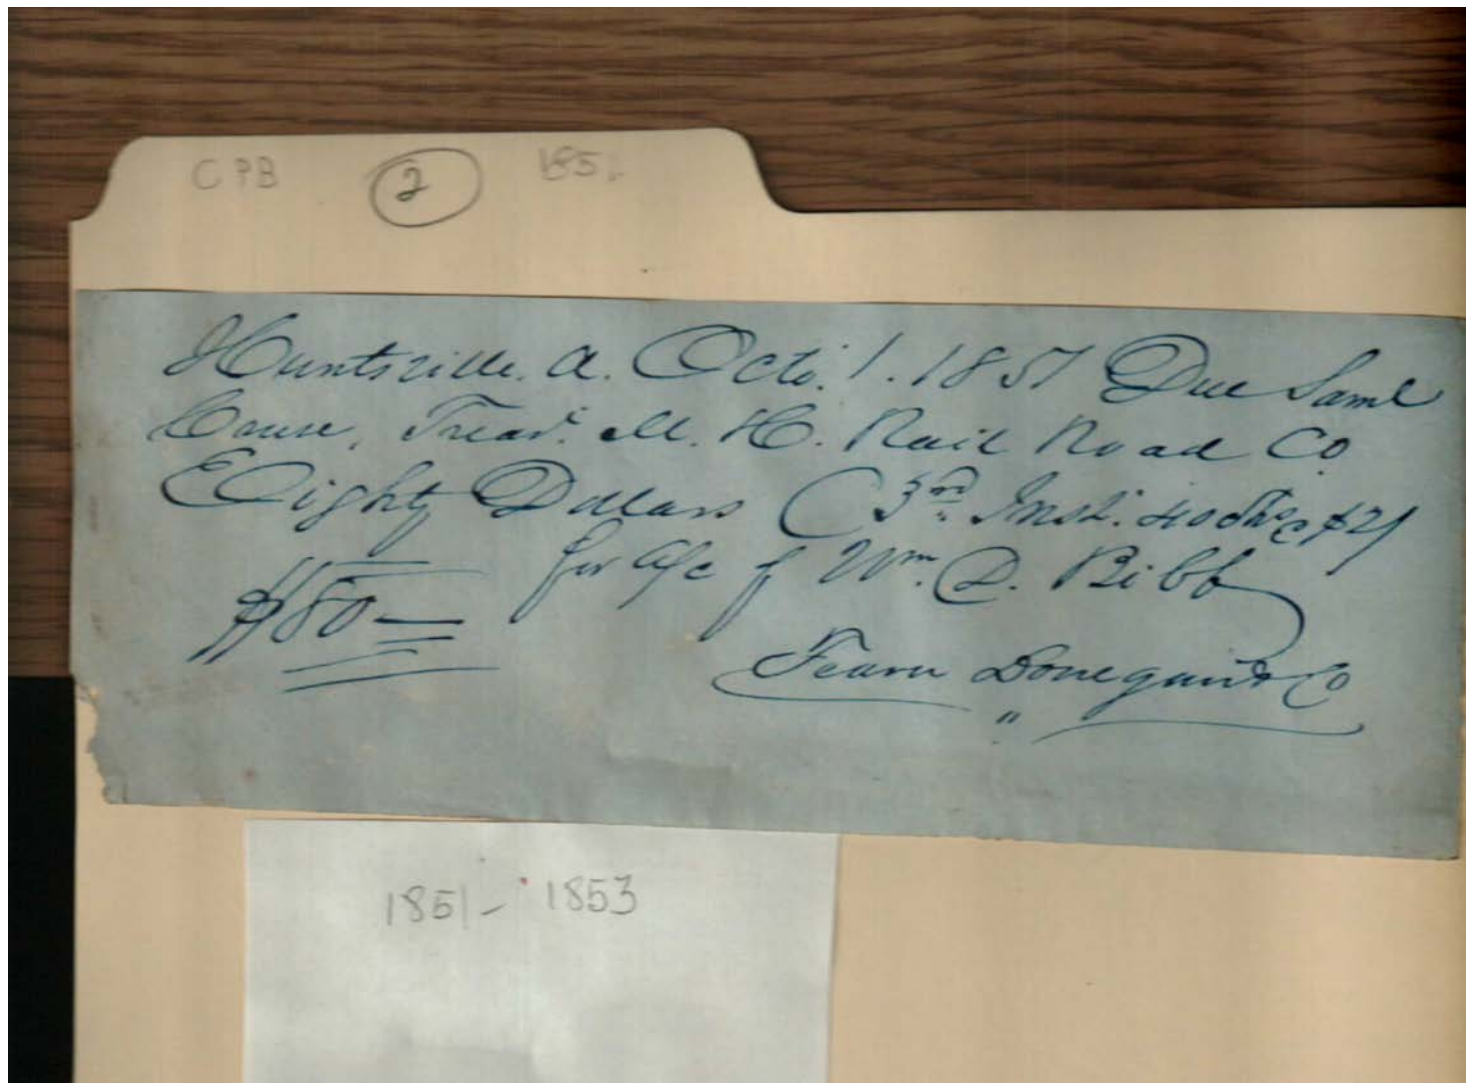 CPB 2 185
Huntsville. A. Octo. 1. 1851 Due Saml
Cruse, Trear. M. & C. Rail Road Co
Eighty Dollars (3rd Inst. 40 Shs @ $2)
for a/c of Wm. D. Bibb
$80
Fearn Donegan & Co
1851- 1853